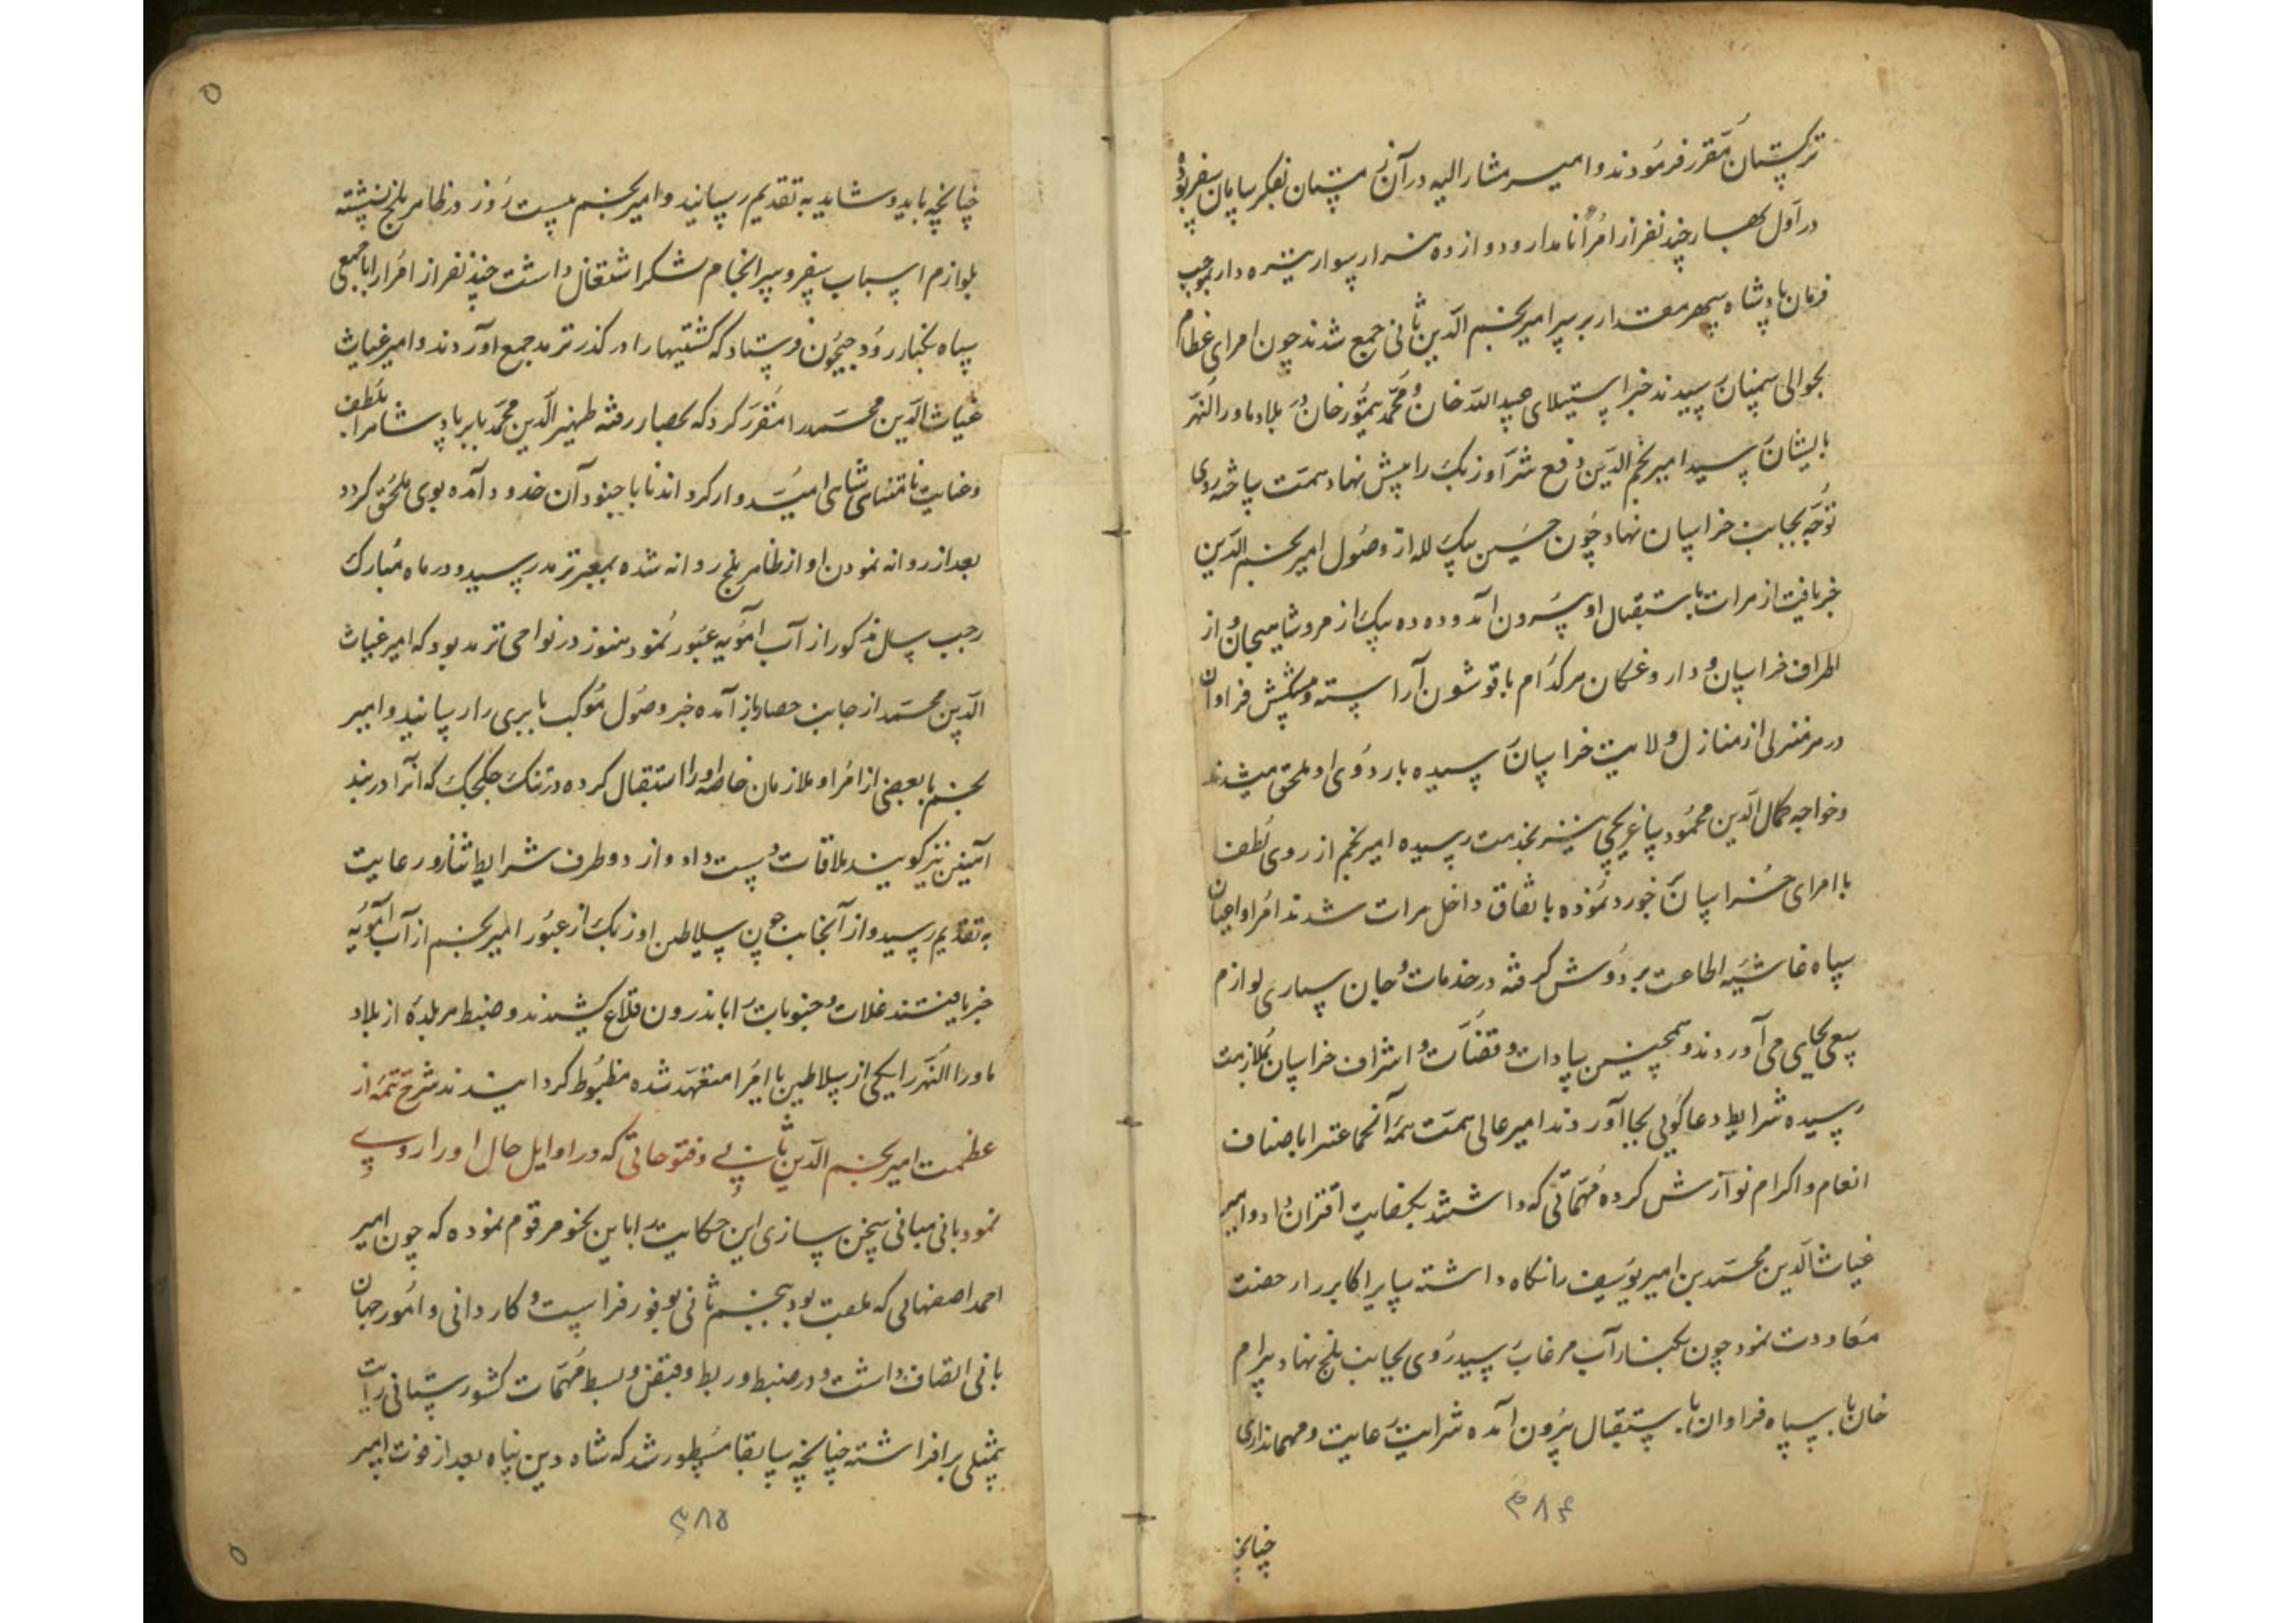 ترکستان مقرر فرمودند و امیر مشار الیه در آن زمستان بفکر سامان سفر بود
در اول بهار چند نفر از امرا نامدار و دوازده هزار سوار نیزه دار بموجب
فرمان پادشاه سپهر مقدار بر سر امیر نجم الدین ثانی جمع شدند چون امرای عظام
بحوالی سمنان رسیدند خبر استیلای عبید الله خان و محمد تیمور خان در بلاد ماورالنهر
بایشان رسید امیر نجم الدین دفع شر اوزبک را پیش نهاد همت ساخته روی
توجه بجانب خراسان نهاد چون حسین بیک لله از وصول امیر نجم الدین
خبر یافت از هرات باستقبال او بیرون آمد و دده بیک از مرو شاهیجان و از
اطراف خراسان و داروغکان هر کدام با قوشون آراسته و پیشکش فراوان
در هر منزلی از منازل ولایت خراسان رسیده باردوی او ملحق میشدند
و خواجه کمال الدین محمود ساغرچی نیز بخدمت رسیده امیر نجم از روی لطف
با امرای خراسان خورد نموده باتفاق داخل هرات شدند امرا و اعیان
سپاه غاشیه اطاعت بر دوش گرفته در خدمات و جان سپاری لوازم
سعی بجای می آوردند و همچنین سادات و قضات و اشراف خراسان بملازمت
رسیده شرایط دعا گوئی بجا آوردند امیر عالی همت همه آنجماعت را باصناف
انعام و اکرام نوازش کرده مهماتی که داشتند بکفایت اقتران داد و امیر
غیاث الدین محمد بن امیر یوسف را نگاه داشته سایر اکابر را رخصت
معاودت نمود چون بکنار آب مرغاب رسید روی بجانب بلخ نهاد بیرام
خان با سپاه فراوان باستقبال بیرون آمده شرایت رعایت و مهمانداری
۳۸۴
چنانچه
چنانچه باید و شاید به تقدیم رسانید و امیر نجم بیست روز در ظاهر بلخ نشسته
بلوازم اسباب سفر و سرانجام لشکر اشتغال داشت چند نفر از امرا را با جمعی
سپاه بکنار رود جیحون فرستاد که کشتیها را در کذر ترمد جمع آوردند و امیر غیاث
غیاث الدین محمد را مقرر کرد که بحصار رفته ظهیر الدین محمد بابر پادشاه را بلطف
و عنایت نامتناهی شاهی امیدوار کرداند تا با جنود آن حدود آمده بوی ملحق کردد
بعد از روانه نمودن او از ظاهر بلخ روانه شده بمعبر ترمد رسید و در ماه مبارک
رجب سال مذکور از آب امویه عبور نمود هنوز در نواحی ترمد بود که امیر غیاث
الدین محمد از جانب حصار باز آمده خبر وصول موکب بابری را رسانید و امیر
نجم با بعضی از امرا و ملازمان خاصه او را استقبال کرده در تنک چکچک که آنرا دربند
آهنین نیز کویند ملاقات دست داد و از دو طرف شرایط نثار و رعایت
به تقدیم رسید و از آنجانب چون سلاطین اوزبک از عبور امیر نجم از آب امویه
خبر یافتند غلات و حبوبات را باندرون قلاع کشیدند و ضبط هر بلدهٔ از بلاد
ماورالنهر را یکی از سلاطین یا امرا متعهد شده مظبوط کردانیدند شرح تتمه از
عظمت امیر نجم الدین ثانی و فتوحاتی که در اوایل حال او را روی
نمود بانی مبانی سخن سازی این حکایت را باین نحو مرقوم نموده که چون امیر
احمد اصفهانی که ملقب بود به نجم ثانی بوفور فراست و کاردانی و امور جهان
بانی اتصاف داشت و در ضبط و ربط و قبض و بسط مهمات کشورستانی رایت
بمثلی بر افراشته چنانچه سابقا مسطور شد که شاه دین پناه بعد از فوت امیر
۳۸۵